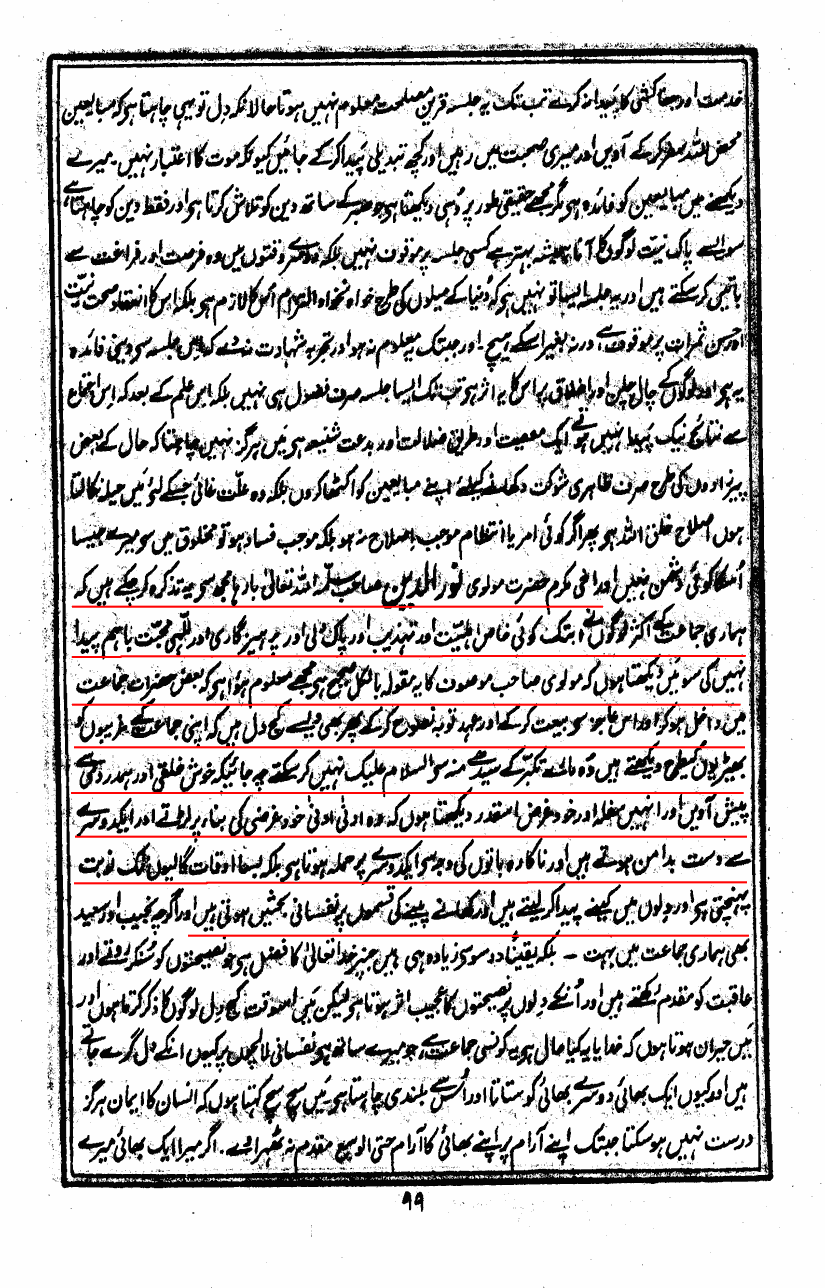 خدمت اور جفاکشی کا پیدا نہ کرے تب تک یہ جلسہ قرین مصلحت معلوم نہیں ہوتا حالانکہ دل تو یہی چاہتا ہی کہ مبایعین
محض للہ سفر کر کے آویں اور میری صحبت میں رہیں اور کچھ تبدیلی پیدا کر کے جائیں کیونکہ موت کا اعتبار نہیں۔ میرے
دیکھنے میں مبایعین کو فائدہ ہی مگر مجھے حقیقی طور پر وُہی دیکھتا ہی جو صبر کے ساتھ دین کو تلاش کرتا ہی اور فقط دین کو چاہتا ہے
سو ایسے پاک نیت لوگوں کا آنا ہمیشہ بہتر ہے کسی جلسہ پر موقوف نہیں بلکہ دوسرے وقتوں میں وہ فرصت اور فراغت سے
باتیں کر سکتے ہیں اور یہ جلسہ ایسا تو نہیں ہی کہ دُنیا کے میلوں کی طرح خواہ نخواہ التزام اُس کا لازم ہی بلکہ اس کا انعقاد صحت نیت
اور حسن ثمرات پر موقوف ہے ورنہ بغیر اسکے ہیچ۔ اور جبتک یہ معلوم نہ ہو اور تجربہ شہادت نہ دے کہ اس جلسہ سی دینی فائدہ
یہ ہی اور لوگوں کے چال چلن اور اخلاق پر اس کا یہ اثر ہی تب تک ایسا جلسہ صرف فضول ہی نہیں بلکہ اس علم کے بعد کہ اِس اجتماع
سے نتائج نیک پیدا نہیں ہوتے ایک معصیت اور طریق ضلالت اور بدعت شنیعہ ہی میں ہرگز نہیں چاہتا کہ حال کے بعض
پیرزادوں کی طرح صرف ظاہری شوکت دکھانے کیلئے اپنے مبایعین کو اکٹھا کروں بلکہ وہ علّت غائی جسکے لئے میں حیلہ نکالتا
ہوں اصلاح خلق اللہ ہی پھر اگر کوئی امر یا انتظام موجب اصلاح نہ ہو بلکہ موجب فساد ہو تو مخلوق میں سی میرے جیسا
اُسکا کوئی دشمن نہیں اور اخی مکرم حضرت مولوی نور الدین صاحب سلّمہ اللہ تعالیٰ بارہا مجھ سی یہ تذکرہ کر چکے ہیں کہ
ہماری جماعت کے اکثر لوگوں نے ابتک کوئی خاص اہلیّت اور تہذیب اور پاک دلی اور پرہیزگاری اور للّٰہی محبّت باہم پیدا
نہیں کی سو میں دیکھتا ہوں کہ مولوی صاحب موصوف کا یہ مقولہ بالکل صحیح ہی مجھے معلوم ہوا ہی کہ بعض حضرات جماعت
میں داخل ہو کر اور اس عاجز سی بیعت کر کے اور عہد توبہ نصوح کر کے پھر بھی ویسے کج دل ہیں کہ اپنی جماعت کے غریبوں کو
بھیڑیوں کیطرح دیکھتے ہیں وُہ مارے تکبّر کے سیدھے منہ سی السلام علیک نہیں کر سکتے چہ جائیکہ خوش خلقی اور ہمدردی سے
پیش آویں اور انہیں سفلہ اور خود غرض اسقدر دیکھتا ہوں کہ وہ ادنیٰ ادنیٰ خود غرضی کی بناء پر لڑتے اور ایکدوسرے
سے دست بدامن ہوتے ہیں اور ناکارہ باتوں کی وجہ سی ایکدوسرے پر حملہ ہوتا ہی بلکہ بسا اوقات گالیوں تک نوبت
پہنچتی ہی اور دلوں میں کینے پیدا کر لیتے ہیں اور کھانے پینے کی قسموں پر نفسانی بحثیں ہوتی ہیں اور اگرچہ نجیب اور سعید
بھی ہماری جماعت میں بہت - بلکہ یقیناً دو سو سی زیادہ ہی ہیں جنپر خدا تعالیٰ کا فضل ہی جو نصیحتوں کو سُنکر روتے اور
عاقبت کو مقدم رکھتے ہیں اور اُنکے دلوں پر نصیحتوں کا عجیب اثر ہوتا ہی لیکن میں اسوقت کج دل لوگوں کا ذکر کرتا ہوں اور
میں حیران ہوتا ہوں کہ خدایا یہ کیا حال ہی یہ کونسی جماعت ہے جو میرے ساتھ ہی نفسانی لالچوں پر کیوں انکے دل گرے جاتے
ہیں اور کیوں ایک بھائی دوسرے بھائی کو ستاتا اور اُس سے بلندی چاہتا ہی میں سچ سچ کہتا ہوں کہ انسان کا ایمان ہرگز
درست نہیں ہو سکتا جبتک اپنے آرام پر اپنے بھائی کا آرام حتی الوسع مقدم نہ ٹھہراوے۔ اگر میرا ایک بھائی میرے
۹۹